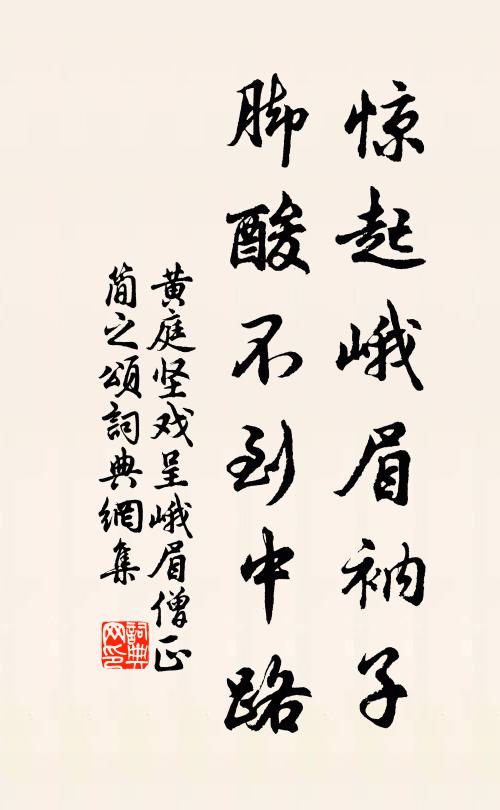 惊起峨眉衲子
脚酸不到中路
黄庭坚戏呈峨眉僧正
简之颂詞典網集
詞典网印